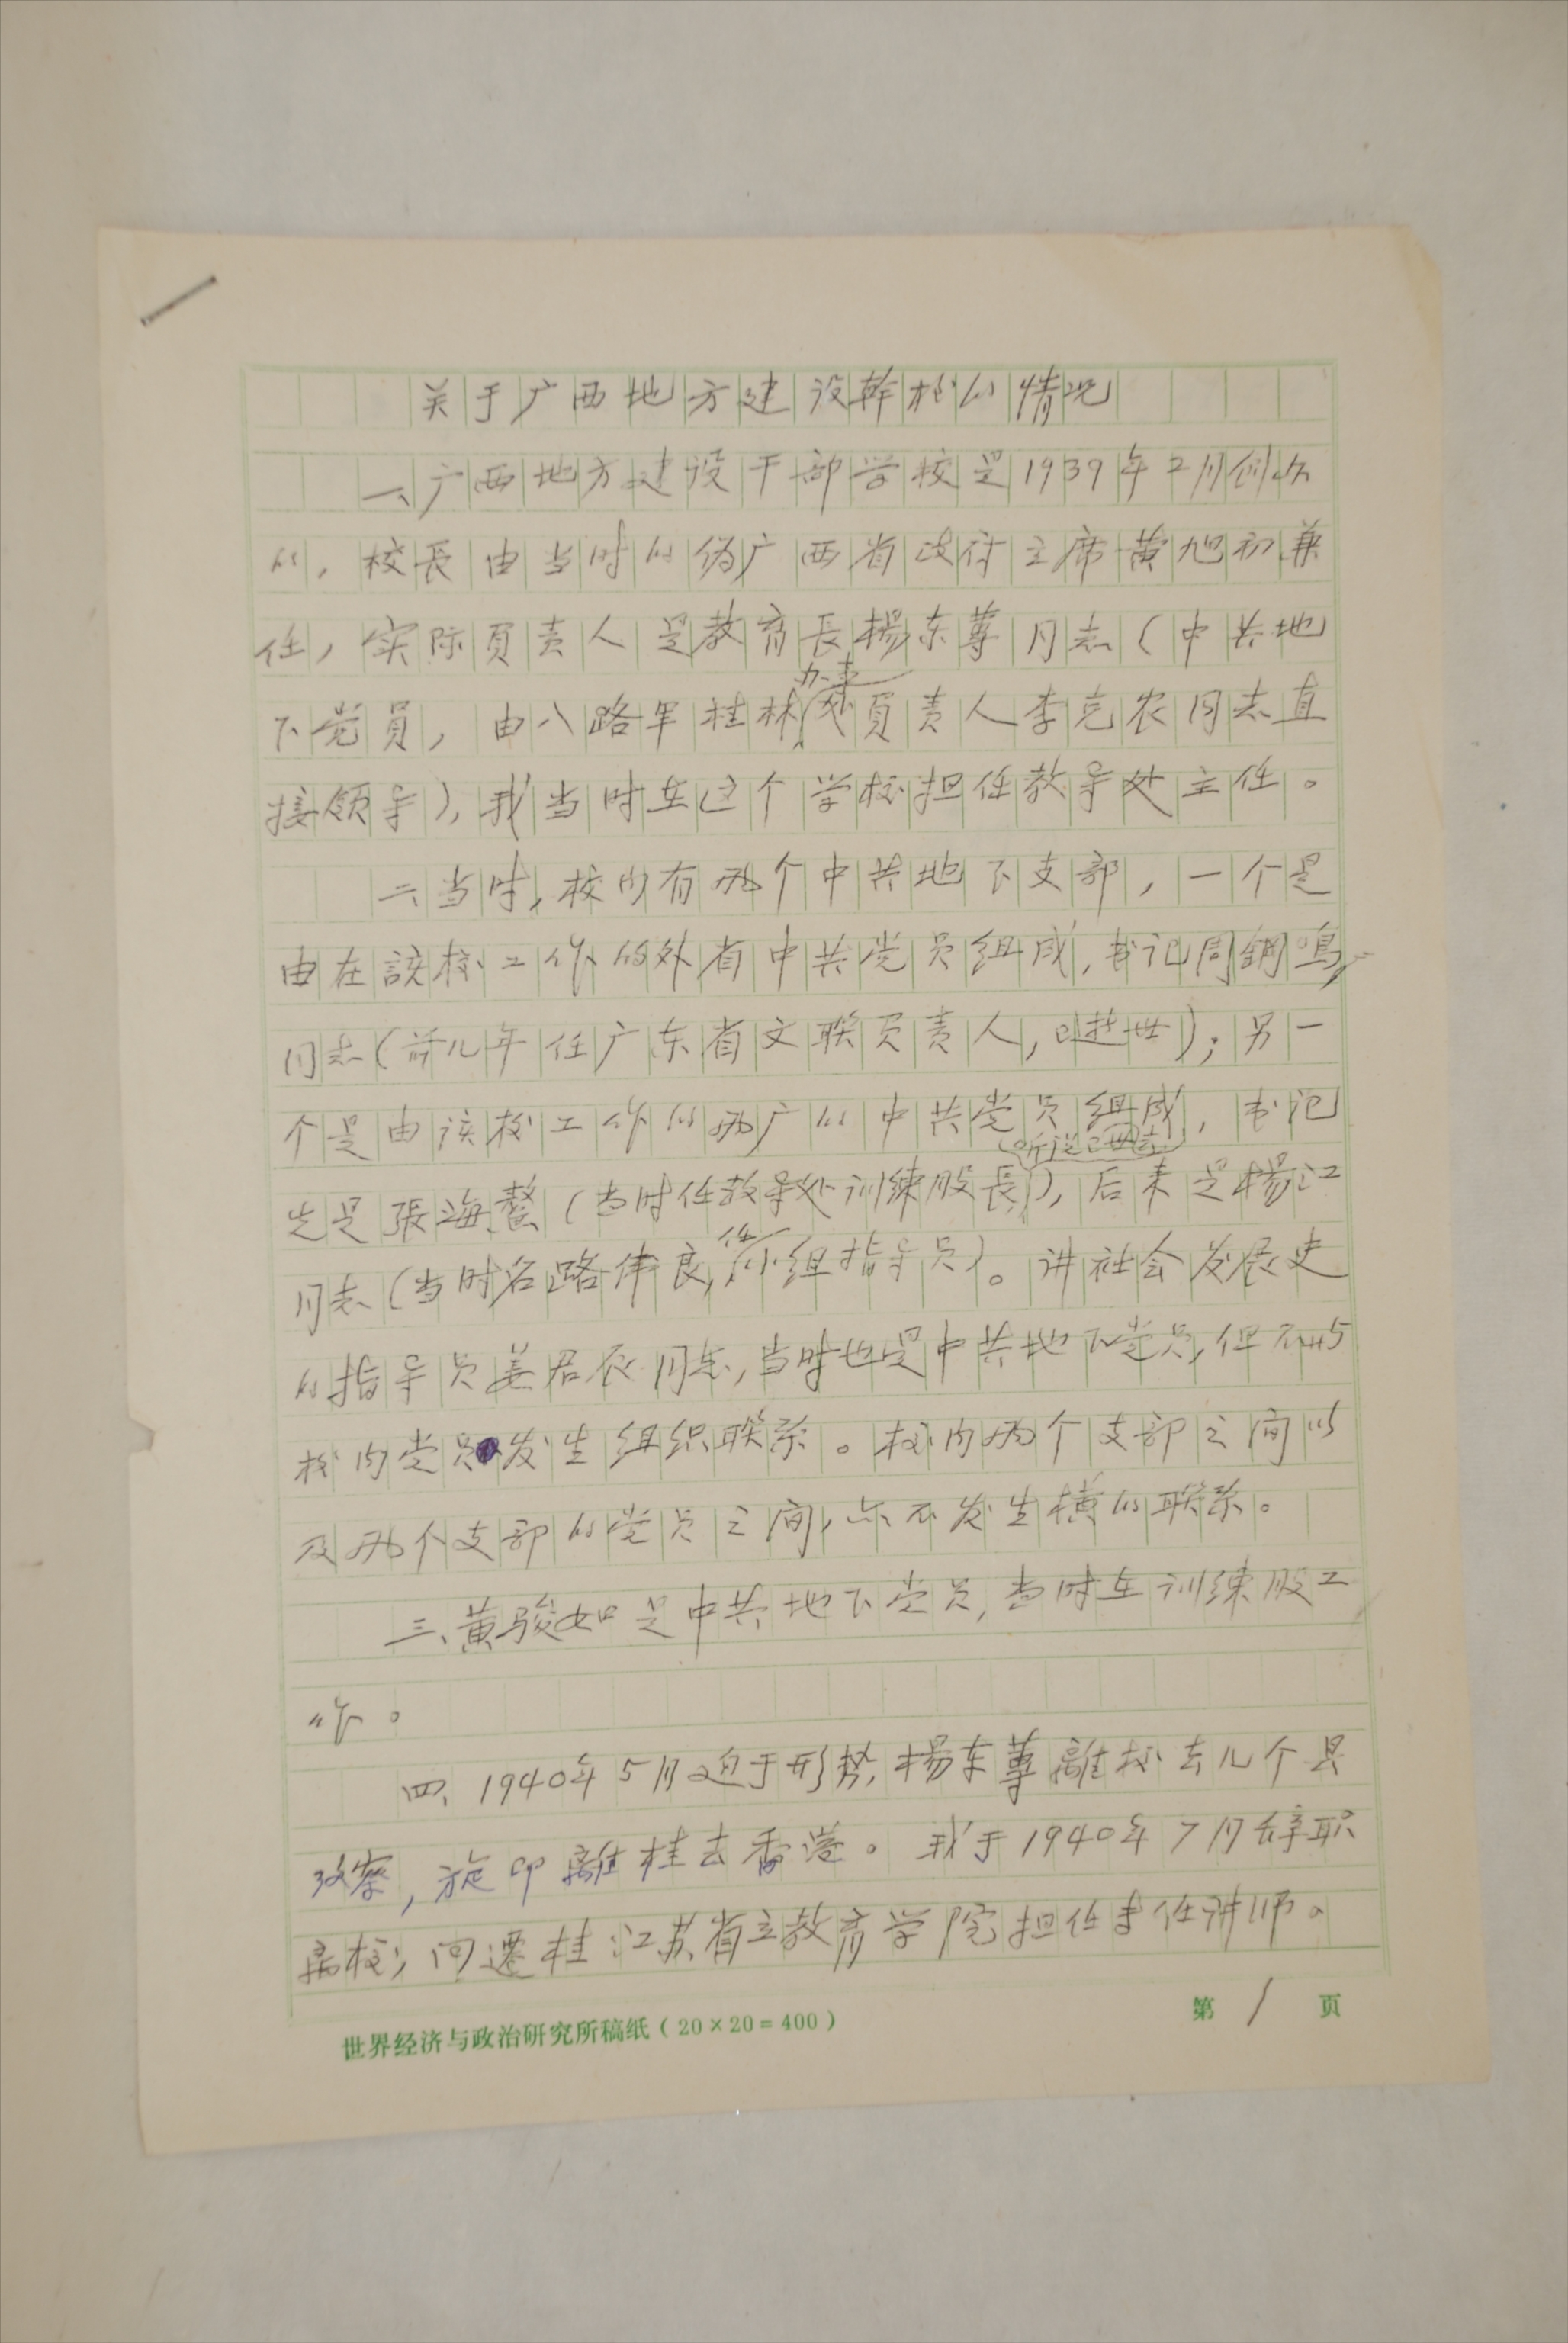 关于广西地方建设幹校的情况
一、广西地方建设干部学校是1939年2月创办
的，校長由当时的伪广西省政府主席黄旭初兼
任，实际負责人是教育長楊东蓴同志（中共地
下党員，由八路军桂林办事处負责人李克农同志直
接领导），我当时在这个学校担任教导处主任。
二、当时，校内有两个中共地下支部，一个是
由在該校工作的外省中共党员组成，书记周鋼鳴
同志（前几年任广东省文联负责人，已逝世）；另一
个是由该校工作的两广的中共党员组成，书记
先是張海鰲（当时任教导处训練股長，听说已去世），后来是楊江
同志（当时名路伟良，任小组指导员）。讲社会发展史
的指导员姜君辰同志，当时也是中共地下党员，但不与
校内党员发生组织联系。校内两个支部之间以
及两个支部的党员之间，亦不发生横的联系。
三、黄骏如是中共地下党员，当时在训練股工
作。
四、1940年5月迫于形势，楊东蓴離校去几个县
攷察，旋即離桂去香港。我于1940年7月辞职
离校，向遷桂江苏省立教育学院担任专任讲师。
世界经济与政治研究所稿纸（20×20=400）
第 1 页